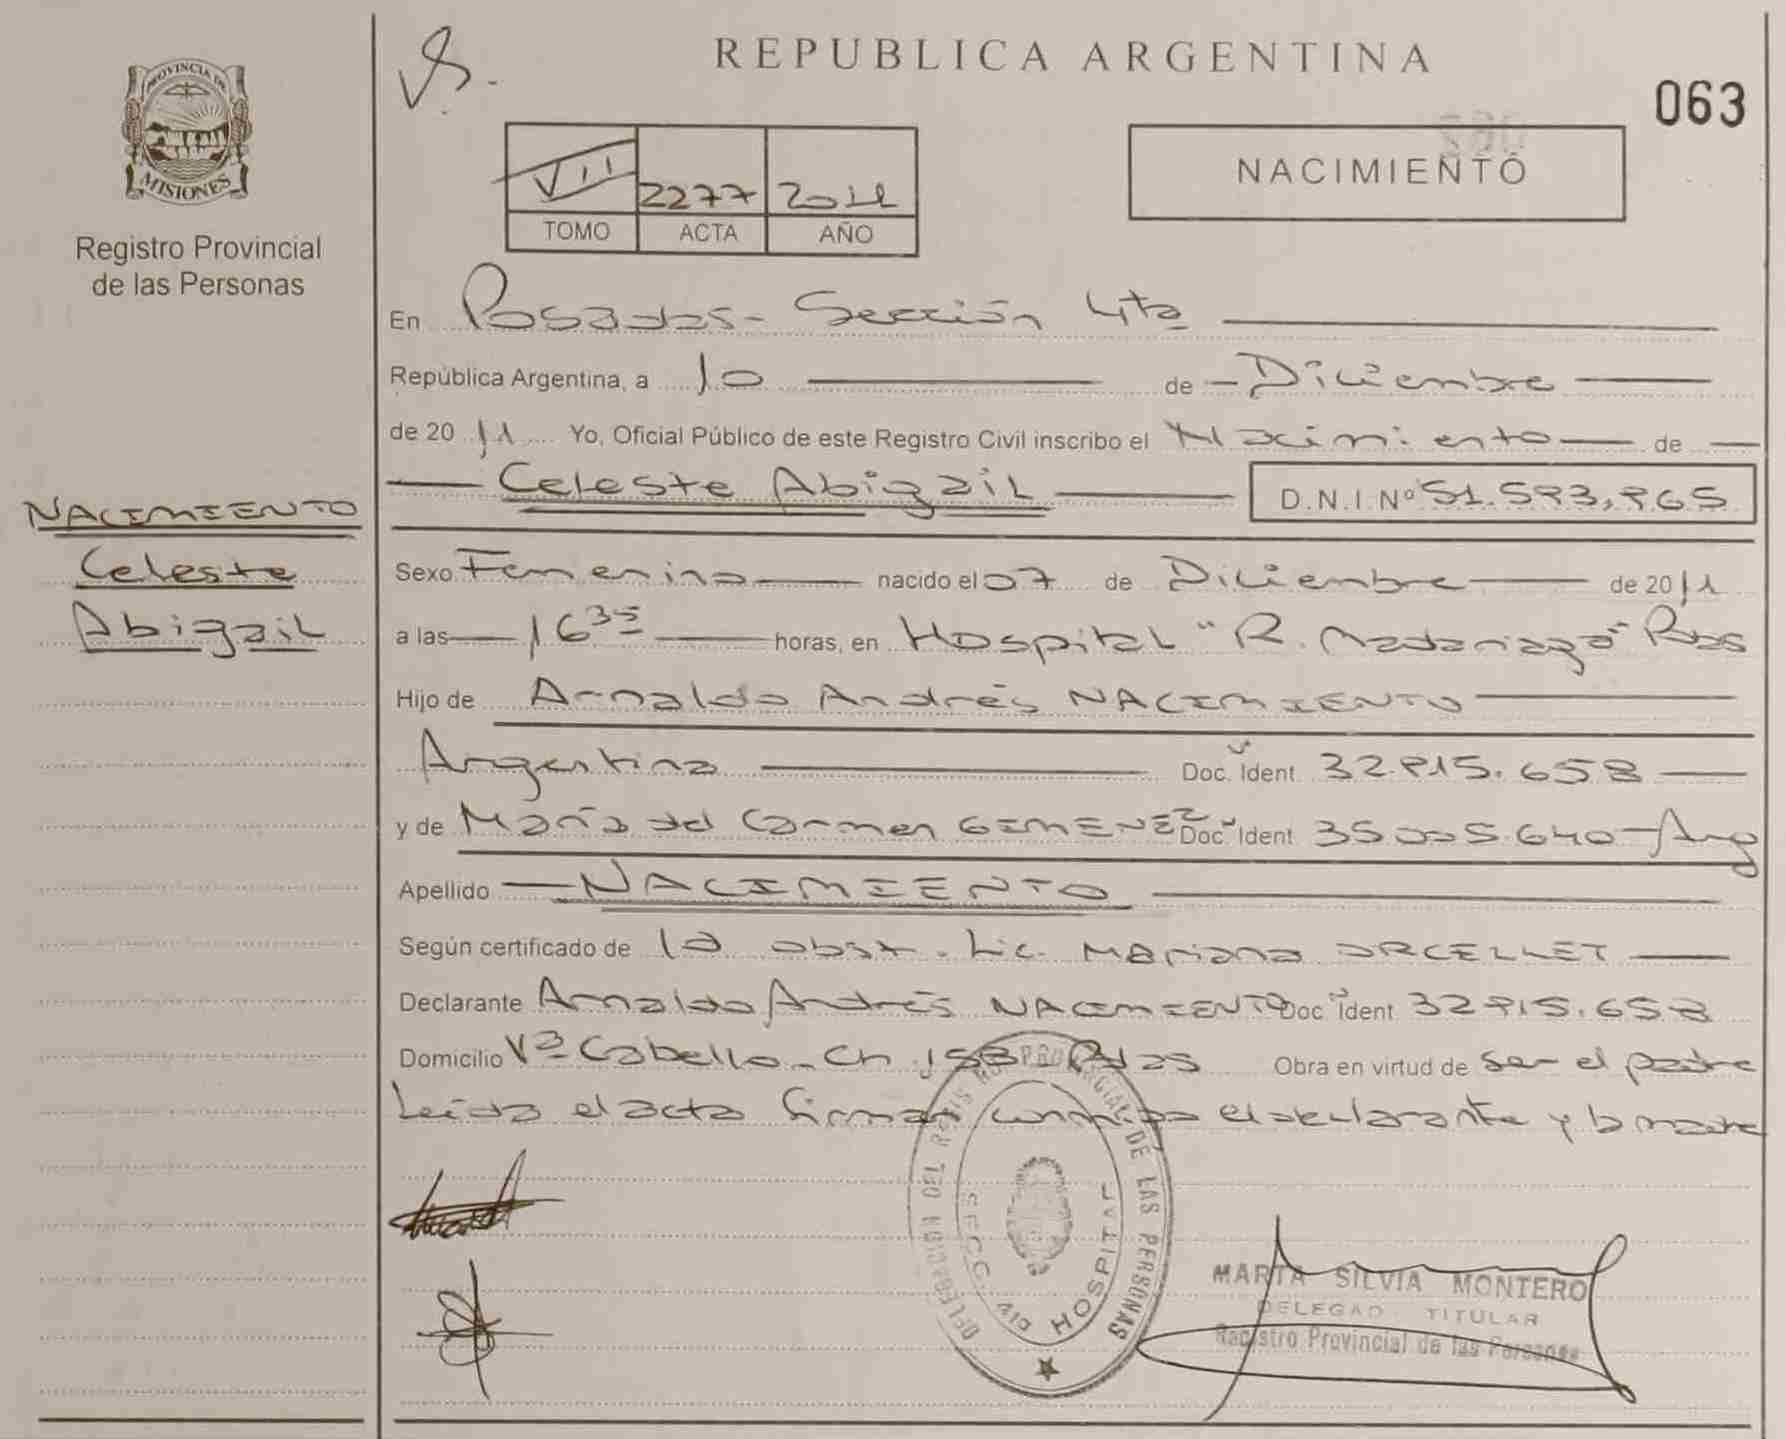 REPUBLICA ARGENTINA
063
PROVINCIA DE
MISIONES
Registro Provincial
de las Personas
VII 2277 2011
TOMO ACTA AÑO
NACIMIENTO
En Posadas - Sección 4ta
República Argentina, a 10 de Diciembre
de 2011 Yo, Oficial Público de este Registro Civil inscribo el Nacimiento de
Celeste Abigail D.N.I. Nº 51.593,965
NACIMIENTO
Celeste
Abigail
Sexo Femenino nacido el 07 de Diciembre de 2011
a las 16 35 horas, en Hospital "R. Madariaga" Pdas
Hijo de Arnaldo Andrés NACIMIENTO
Argentina Doc. Ident 32.915.658
y de María del Carmen GIMENEZ Doc. Ident 35.005.640 - Arg
Apellido NACIMIENTO
Según certificado de la obst. Lic. Mariana ORCELLET
Declarante Arnaldo Andrés NACIMIENTO Doc Ident 32.915.658
Domicilio Vª Cabello - Ch 153 Pdas Obra en virtud de ser el padre
Leída el acta firman conmigo el declarante y la madre
DELEGACION DEL REGISTRO PROVINCIAL DE LAS PERSONAS
SECC. 4ta HOSPITAL
MARTA SILVIA MONTERO
DELEGAD TITULAR
Registro Provincial de las Personas